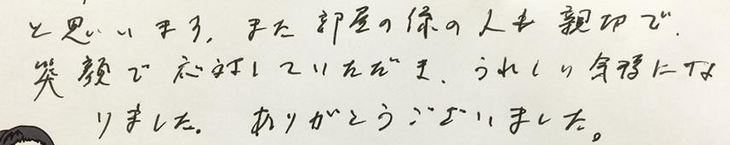 と思いいます。また部屋の係の人も親切で、
笑顔で応対していただき、うれしい気持にな
りました。ありがとうございました。